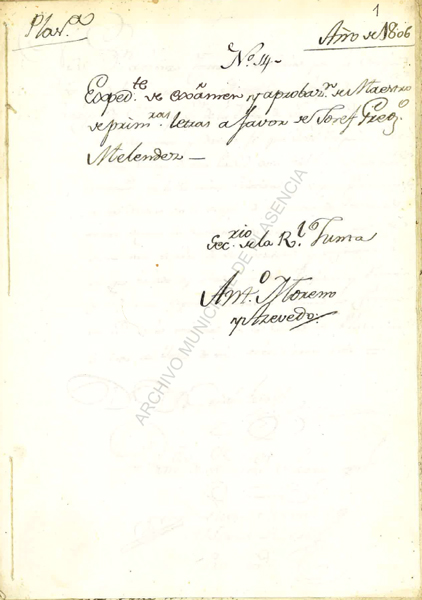 1
Plas.ª
Año de 1806
N.º 14~
Exped.te de exâmen y aprobaz.n de Maestro
de prim.ras letras a favor de Josef Greg.º
Melendez —
Sec.rio de la R.l Junta
Ant.º Moreno
y Azevedo.
ARCHIVO MUNICIPAL DE PLASENCIA